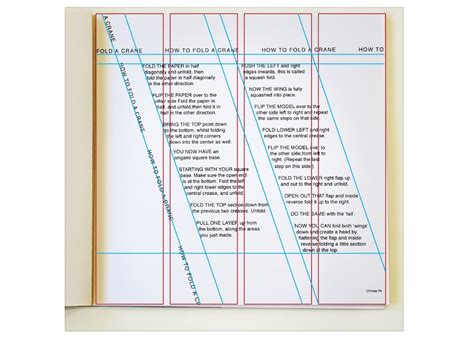 A CRANE
HOW TO FOLD A CRANE
HOW TO FOLD A CRANE
HOW TO
FOLD A CRANE
HOW TO FOLD A CRANE
HOW TO FOLD A CRANE
HOW TO FOLD A CRANE
HOW TO FOLD A CRA
FOLD THE PAPER in half
diagonally and unfold, then
fold the paper in half diagonally
in the other direction.
FLIP THE PAPER over to the
other side Fold the paper in
half, and unfold, then fold it in
half in the other direction.
BRING THE TOP point down
to the bottom, whilst folding
the left and right corners
down into the center as well.
YOU NOW HAVE an
origami square base.
STARTING WITH YOUR square
base. Make sure the open end
is at the bottom. Fold the left
and right lower edges to the
central crease, and unfold.
FOLD THE TOP section down from
the previous two creases. Unfold.
PULL ONE LAYER up from
the bottom, along the areas
you just made.
PUSH THE LEFT and right
edges inwards, this is called
a squash fold.
NOW THE WING is fully
squashed into place.
FLIP THE MODEL over to the
other side left to right and repeat
the same steps on that side.
FOLD LOWER LEFT and right
edges to the central crease
FLIP THE MODEL over to the
other side, from left to
right. (Repeat the last
step on this side)
FOLD THE LOWER right flap up
and out to the right and unfold.
OPEN THAT flap and inside
reverse fold it up to the right.
DO THE SAME with the 'tail'
NOW YOU CAN fold both 'wings'
down and create a head by
flattening the flap and inside
reverse folding a little section
down at the top.